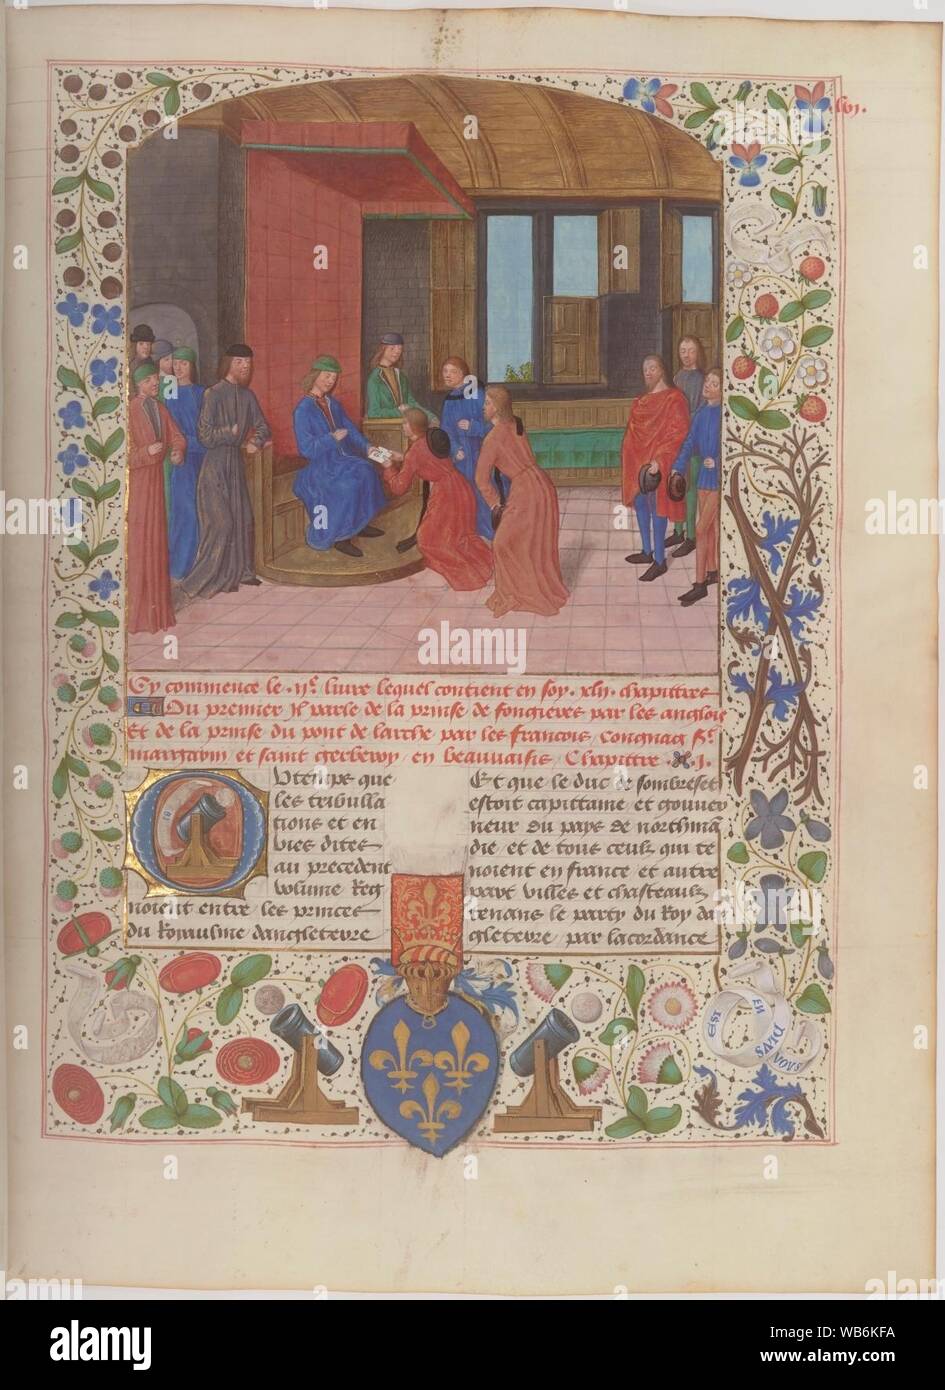 .lvj.
Cy commence le .ije. liure lequel contient en soy .xlij. chapittres
Du premier Jl parle de la prinse de fougieres par les anglois
Et de la prinse du pont de larche par les francois, congnac St.
margarin et saint gerberoy en beauuaisis, Chapittre .J.
Ou temps que
les tribulla
tions et en
vies dites
au precedent
volume Reg
noient entre les princes
du Royaulme dangleterre
Et que le duc de sombreset
estoit capittaine et gouuer
neur du pays de northman
die et de tous ceulx qui te
noient en france et autre
part villes et chasteaulx
tenans le party du Roy dan
gleterre par lacordance
PLVS
EN
EST
VOVS
alamy
a
alamy stock photo
alamy
Image ID: WB6KFA
www.alamy.com